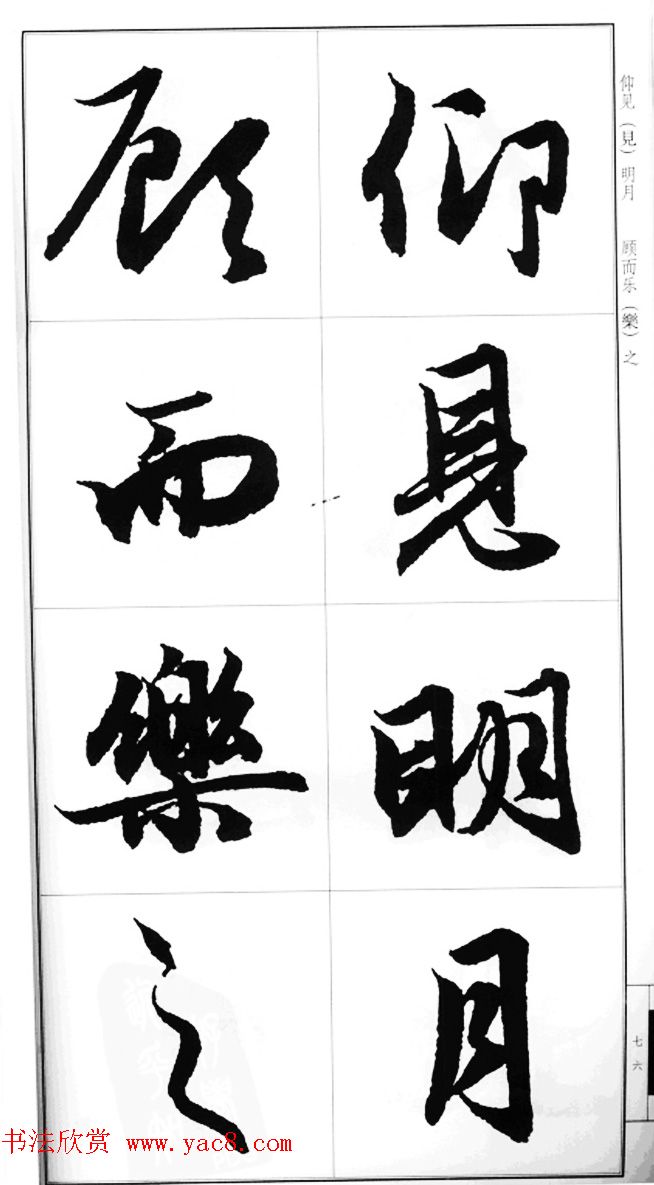 仰见（見）明月　顾而乐（樂）之
仰見明月
顾而樂之
七六
书法欣赏 www.yac8.com